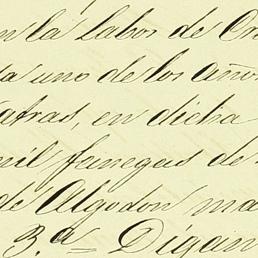 en la Labor de Cr
ta uno de los años
atras, en dicha
mil fanegas de
de Algodon ma
3.ª Digan